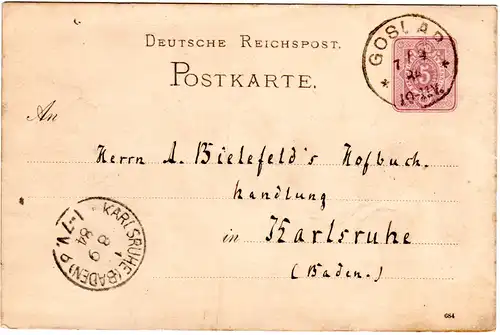 DEUTSCHE REICHSPOST.
POSTKARTE.
GOSLAR
5
An
Herrn A. Bielefeld's Hofbuch.
handlung
in Karlsruhe
(Baden.)
KARLSRUHE (BADEN)
8 9
84
684